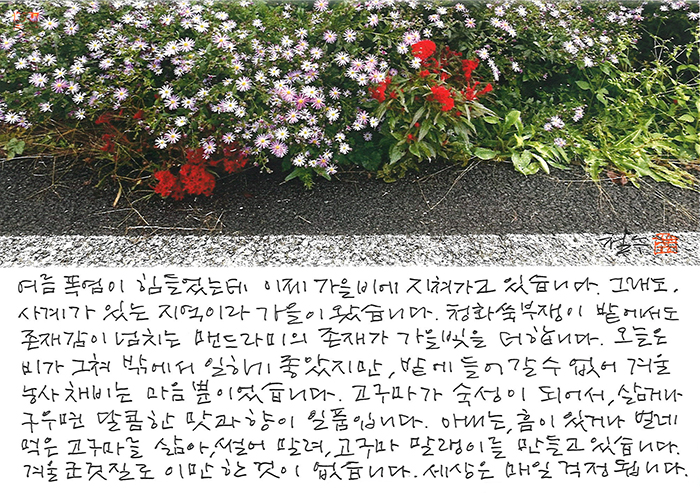 철수
여름 폭염이 힘들었는데 이제 가을비에 지쳐가고 있습니다. 그래도,
사계가 있는 지역이라 가을이 왔습니다. 청화쑥부쟁이 밭에서도
존재감이 넘치는 맨드라미의 존재가 가을빛을 더합니다. 오늘은
비가 그쳐 밖에서 일하기 좋았지만, 밭에 들어갈 수 없어 겨울
농사 채비는 마음 뿐이었습니다. 고구마가 숙성이 되어서, 삶거나
구우면 달콤한 맛과 향이 일품입니다. 아내는, 흠이 있거나 벌레
먹은 고구마를 삶아, 썰어 말려, 고구마 말랭이를 만들고 있습니다.
겨울 군것질로 이만한 것이 없습니다. 세상은 매일 걱정됩니다.